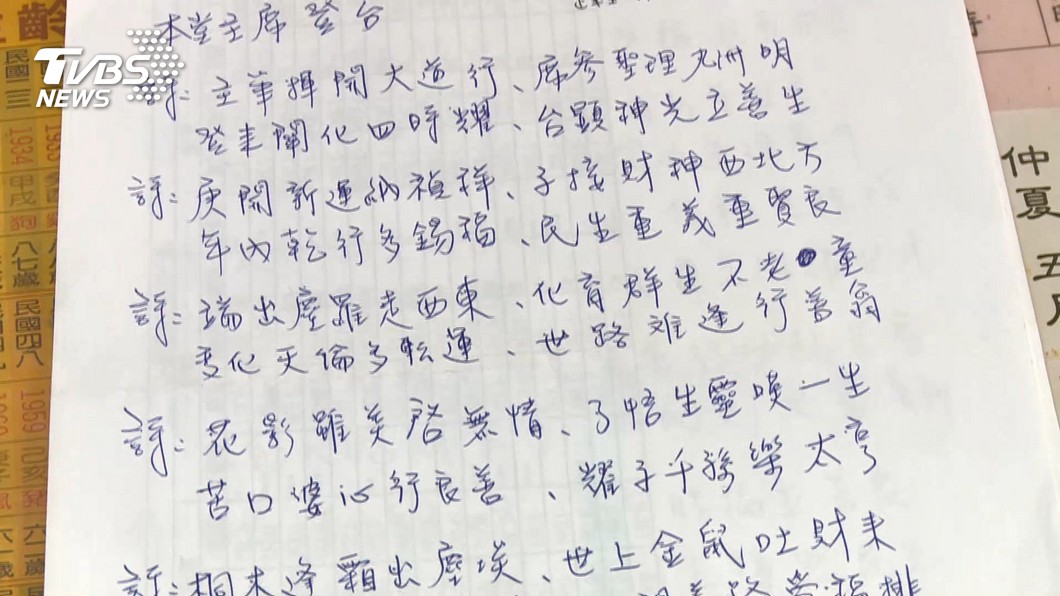 本堂主席登台
TVBS
NEWS
詩:主筆揮開大道行、席參聖理九州明
登來闡化四時耀、台顯神光立善生
詩:庚開新運納禎祥、子接財神西北方
年內乾行多錫福、民生重義重賢良
詩:瑞出塵羅走西東、化育群生不老童
變化天倫多転運、世路难逢行善翁
詩:花影雖美啓無情、了悟生靈嘆一生
苦口婆心行良善、耀子千孫樂太亨
詩:桐木逢霜出塵埃、世上金鼠吐財來
路 福排
民國三
1934
甲戌
狗
八七歲
民國四八
1959
己亥
豬
六一歲
仲夏
五月